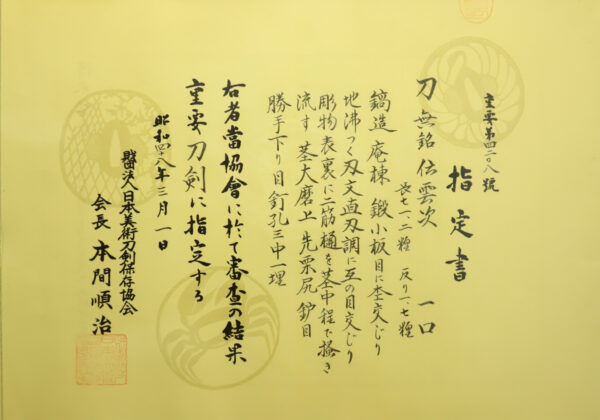 重要第四二〇八號
指定書
刀 無銘 伝雲次 一口
長七一、二糎 反り一、七糎
鎬造 庵棟 鍛小板目に杢交じり
地沸つく 刃文直刃調に互の目交じり
彫物表裏に二筋樋を茎中程で掻き
流す 茎大磨上 先栗尻 鑢目
勝手下り 目釘孔三中一埋
右者當協會に於て審査の結果
重要刀剣に指定する
昭和四十八年三月一日
財団法人日本美術刀剣保存協会
会長 本間順治